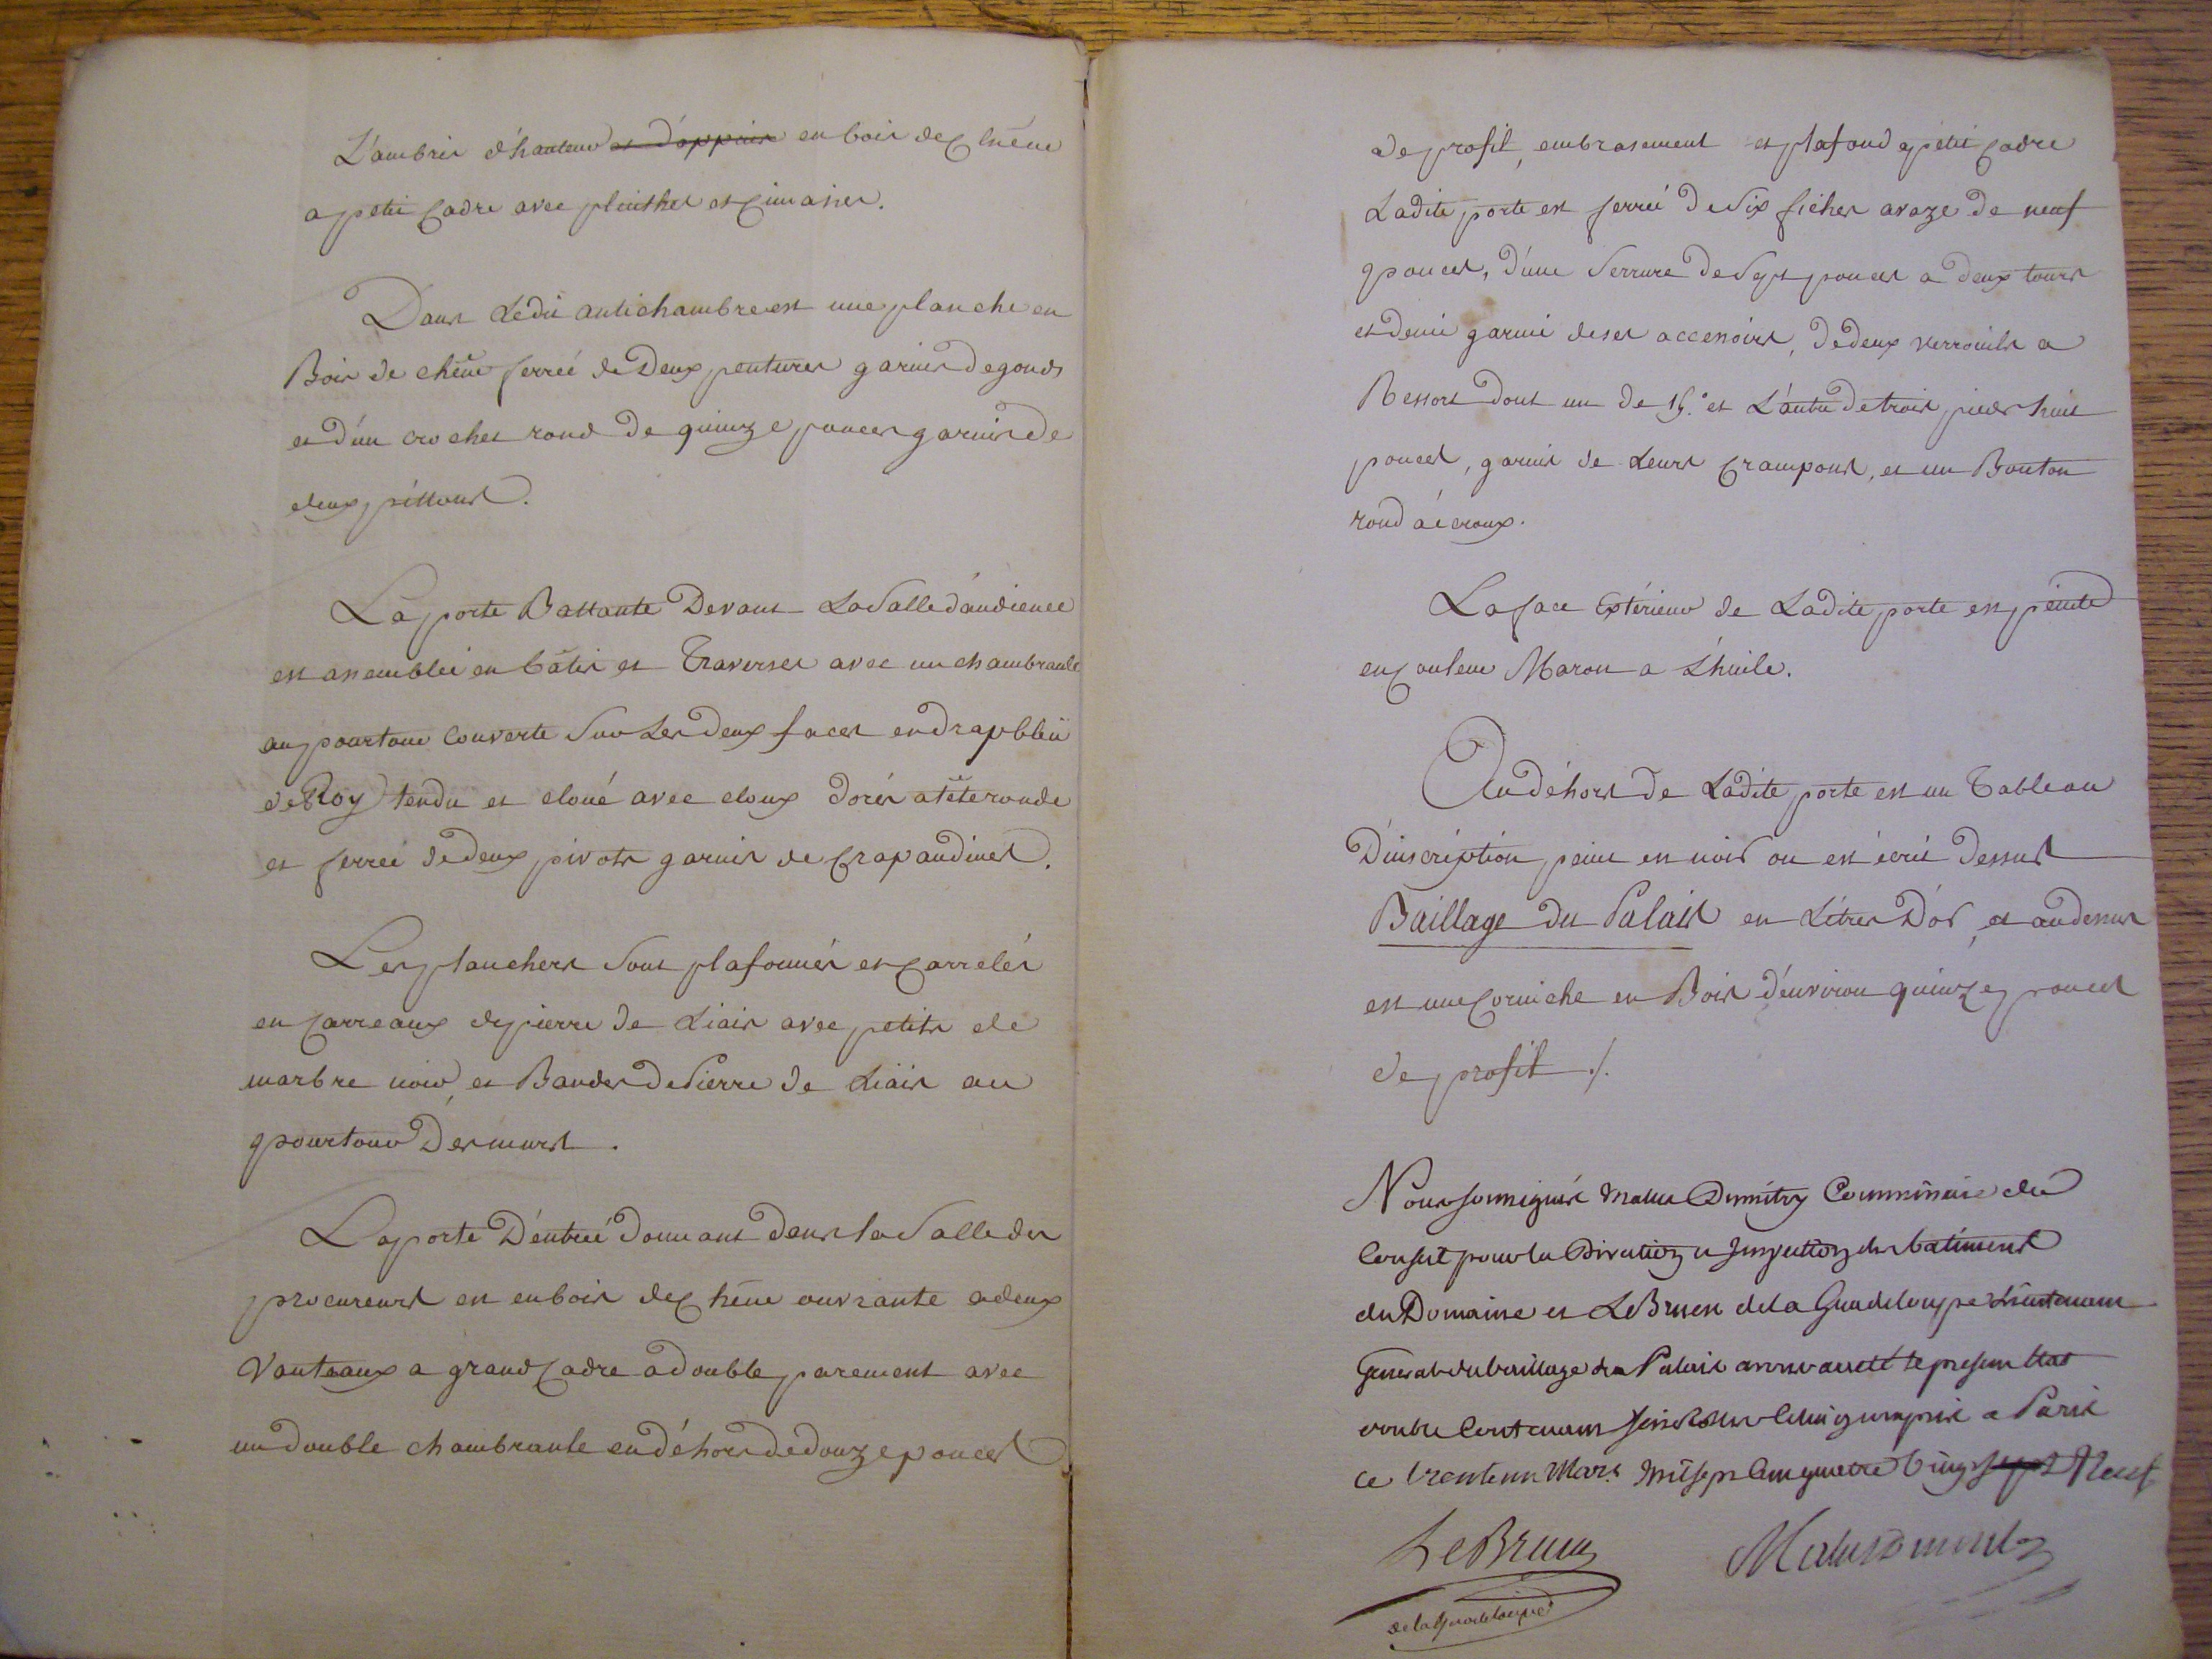 L'ambris d'hauteur et d'appuis en bois de chêne
a petit cadre avec plinthes et cimaises.
Dans Ledit antichambre est une planche en
Bois de chêne ferrée de Deux pentures garnies de gonds
et d'un crochet rond de quinze pouces garnis de
deux pittons.
La porte Battante Devant La Salle d'audience
est assemblée en bâtis et Traverses avec un chambranle
au pourtour Couverte Sur Les Deux faces en drap bleü
de Roy tendu et cloué avec cloux dorés a tête ronde
et ferrée de deux pivots garnis de Crapaudines.
Les planchers sont plafonnés et carrelés
en carreaux de pierre de Liais avec petits de
marbre noir, et Bandes de Pierre de Liais au
pourtour Des murs.
La porte D'entrée Donnant Dans la Salle des
procureurs est en bois de chêne ouvrante a deux
Vanteaux a grand Cadre a double parement avec
un double chambranle en déhors de douze pouces
de profil, embrasement et plafond a petit cadre
Ladite porte est ferrée de Six fiches a vaze de neuf
pouces, d'une Serrure de Sept pouces a deux tours
et demi garnie de ses accessoires, de deux verrouils a
Ressort dont un de 15.° et L'autre de trois pieds huit
pouces, garnis de Leurs Crampons, et un Bouton
rond a écroux.
La face Extérieur de Ladite porte est peinte
en Couleur Maron a L'huile.
Au déhors de Ladite porte est un Tableau
D'inscription peint en noir ou est écrit Dessus
Baillage du Palais en Létres D'or, et au dessus
est une Corniche en Bois d'environ quinze pouces
de profil ./.
Nous soussignés Malus Dumitry Commissaire du
Conseil pour la Direction et Inspection des batiments
du Domaine et LeBrun de la Guadeloupe Lieutenant
General du baillage du Palais avons arreté le present Etat
double Contenant a Paris
ce trente un Mars mil sept Cent quatre Vingt sept Neuf
LeBrun
de la Guadeloupe